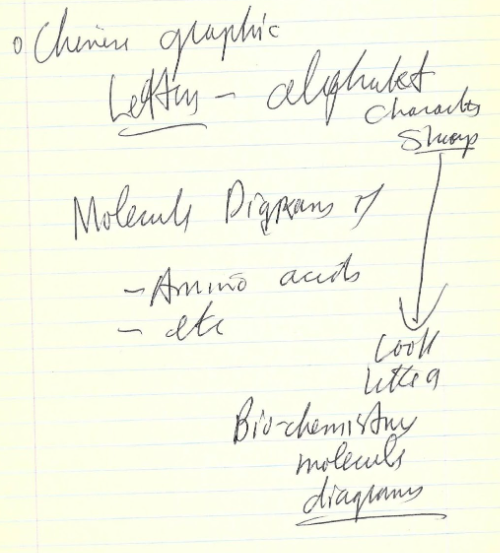 o Chinese graphic
Letters - alphabet
characters
Sharp
Molecule Digrams of
- Amino acids
- etc
look
like a
Bio-chemistry
molecule
diagrams